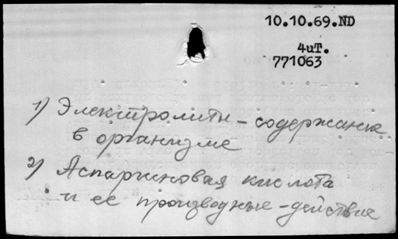 10.10.69.ND
4иТ.
771063
1) Электролиты - содержание
в организме
2) Аспарагиновая кислота
и ее производные - действие